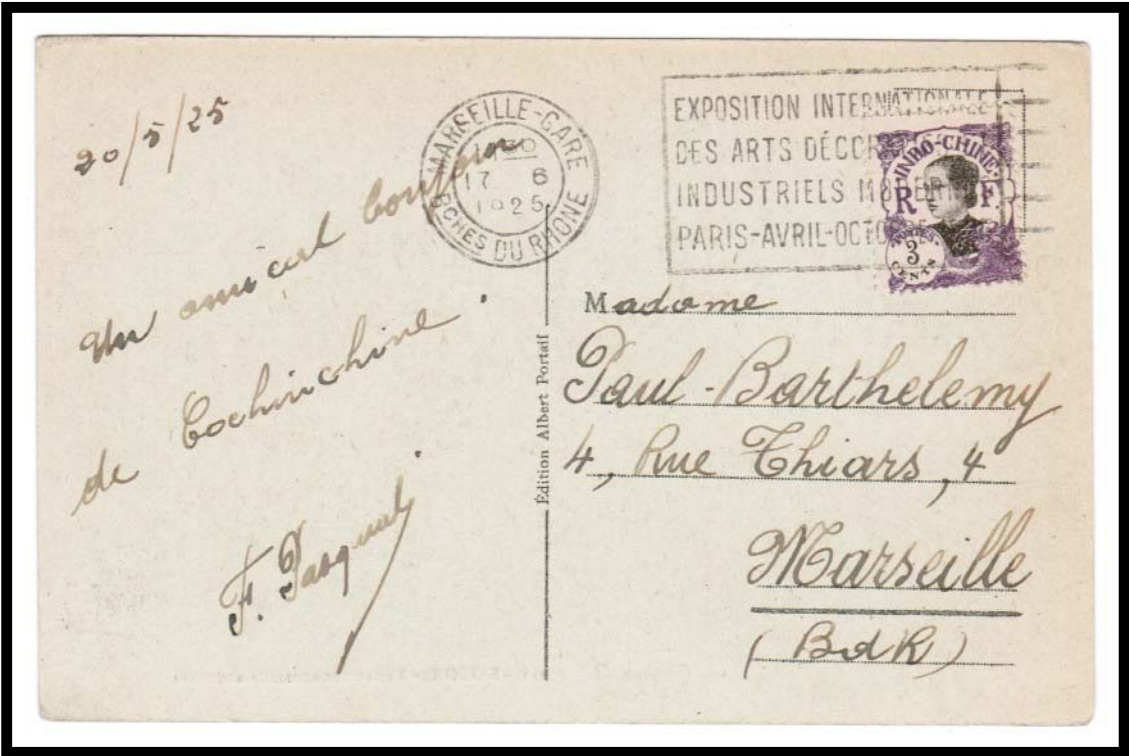 20/5/25
Un amical bonjour
de Cochinchine.
F. Pasquali
MARSEILLE-GARE
17 6
1925
BCHES DU RHONE
EXPOSITION INTERNATIONALE
DES ARTS DÉCOR
INDUSTRIELS MODERN
PARIS-AVRIL-OCTOBRE
INDO-CHINE
R F
3
CENTS
Édition Albert Portail
Madame
Paul-Barthelemy
4, Rue Thiars, 4
Marseille
(BdR)